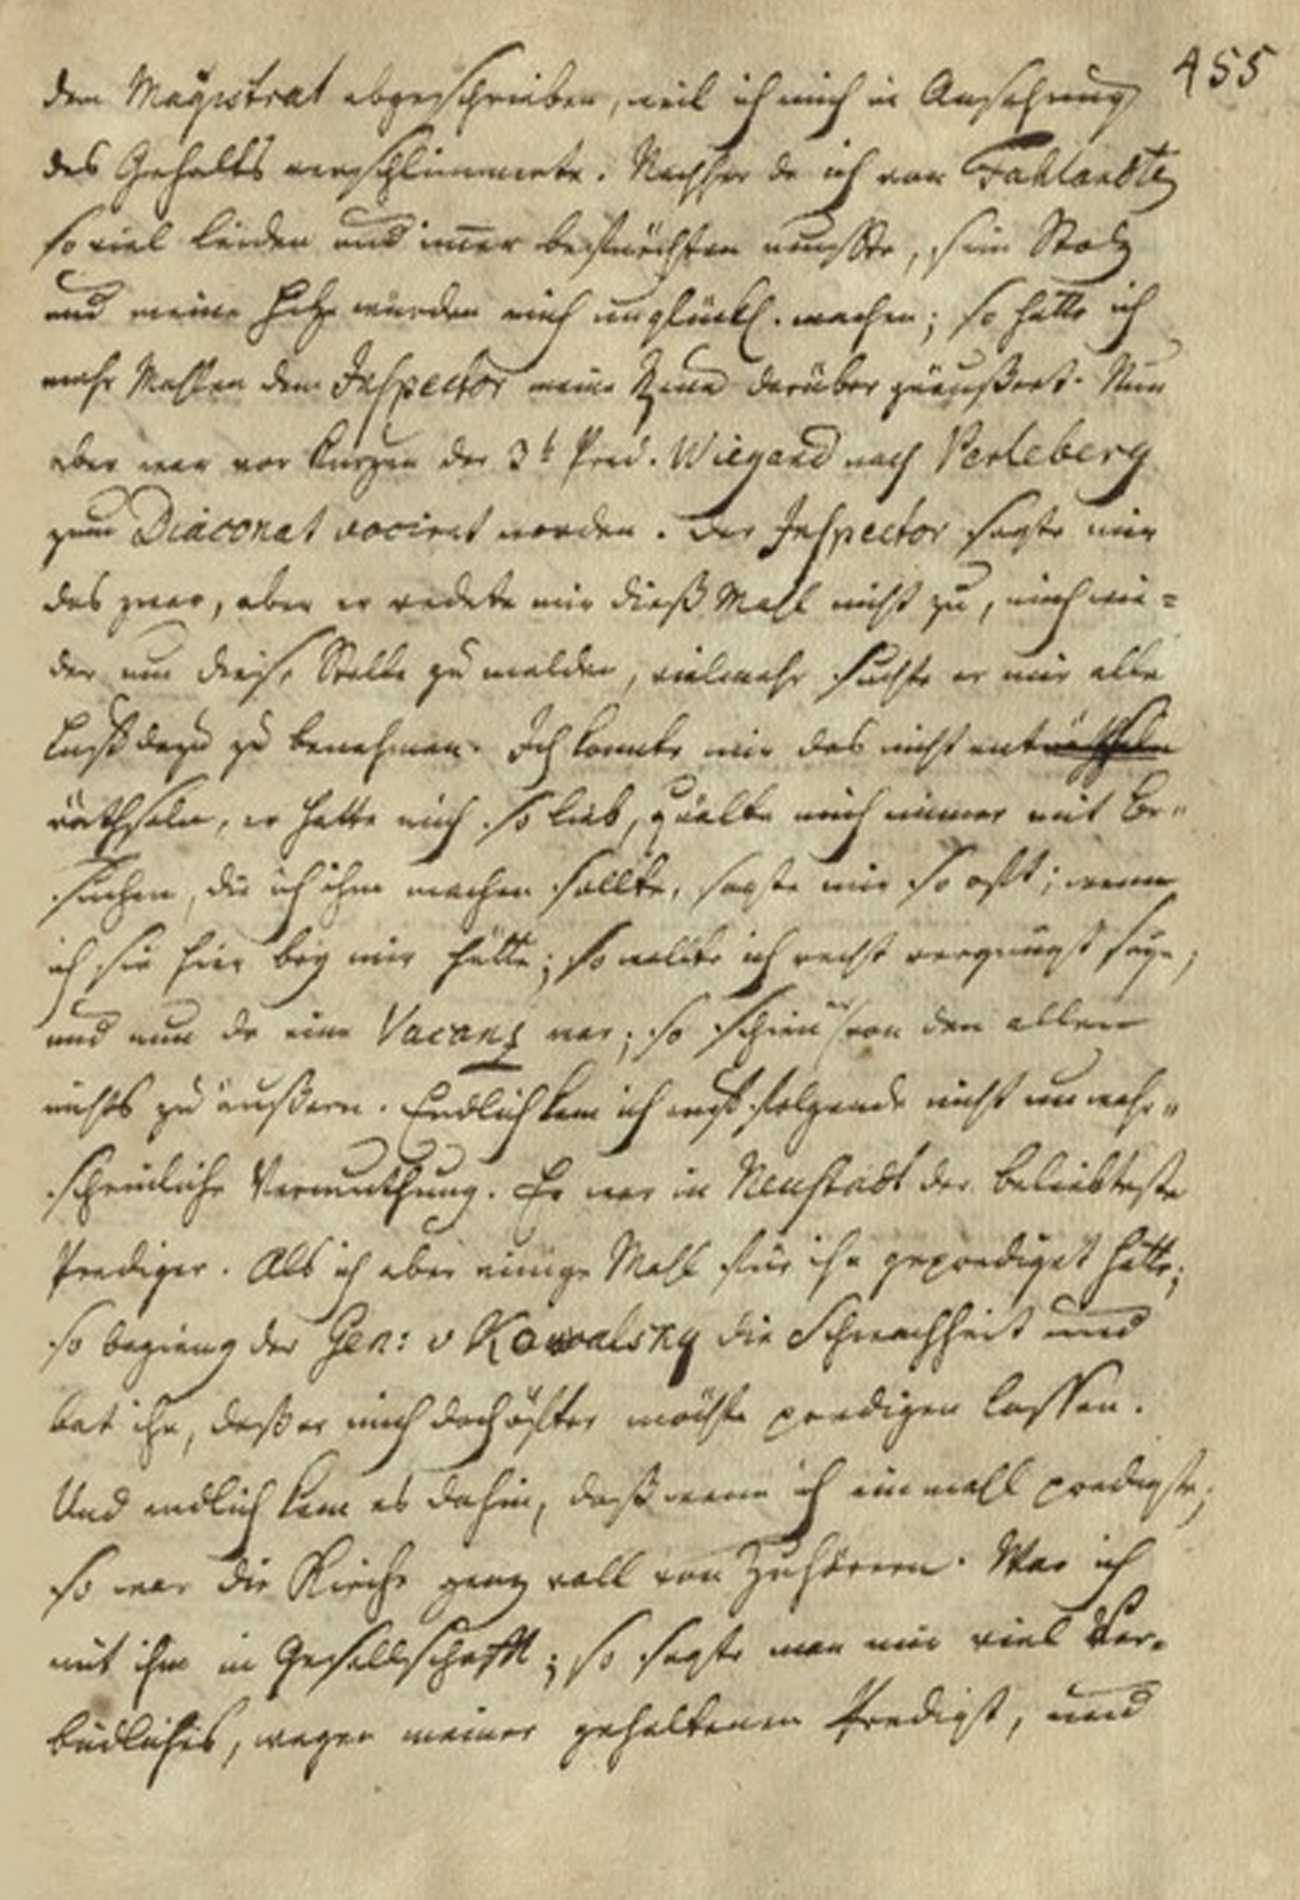 455
dem Magistrat abgeschrieben, weil ich mich in Ansehung
des Gehalts verschlimmerte. Nachher da ich von Fahlandts
so viel leiden und im̅er befürchten muste, sein Stolz
und meine Hitze würden mich unglückl. machen; so hatte ich
mehr Mahlen dem Inspector meine Reue darüber geäußert. Nun
aber war vor kurzen der 3t Pred. Wiegand nach Perleberg
zum Diaconat vocirt worden. Der Inspector sagte mir
das zwar, aber er redete mir dieß Mahl nicht zu, mich wie=
der um diese Stelle zu melden, vielmehr suchte er mir alle
Lust dazu zu benehmen. Ich konnte mir das nicht enträthseln
räthseln, er hatte mich so lieb, quälte mich immer mit Be=
suchen, die ich ihm machen sollte, sagte mir so oft; wenn
ich sie hier bey mir hätte; so wollte ich recht vergnügt seyn;
und nun da eine Vacanz war; so schien er von den allen
nichts zu äußern. Endlich kam ich auf folgende nicht unwahr=
scheinliche Vermuthung. Er war in Neustadt der beliebteste
Prediger. Als ich aber einige Mahl für ihn geprediget hatte;
so beging der Gen: v Kowalsky die Schwachheit und
bat ihn, daß er mich doch öfter möchte predigen lassen.
Und endlich kam es dahin, daß wenn ich ein mahl predigte;
so war die Kirche ganz voll von Zuhörern. War ich
mit ihm in Gesellschafft; so sagte man mir viel Ver=
bindliches, wegen meiner gehaltenen Predigt, und